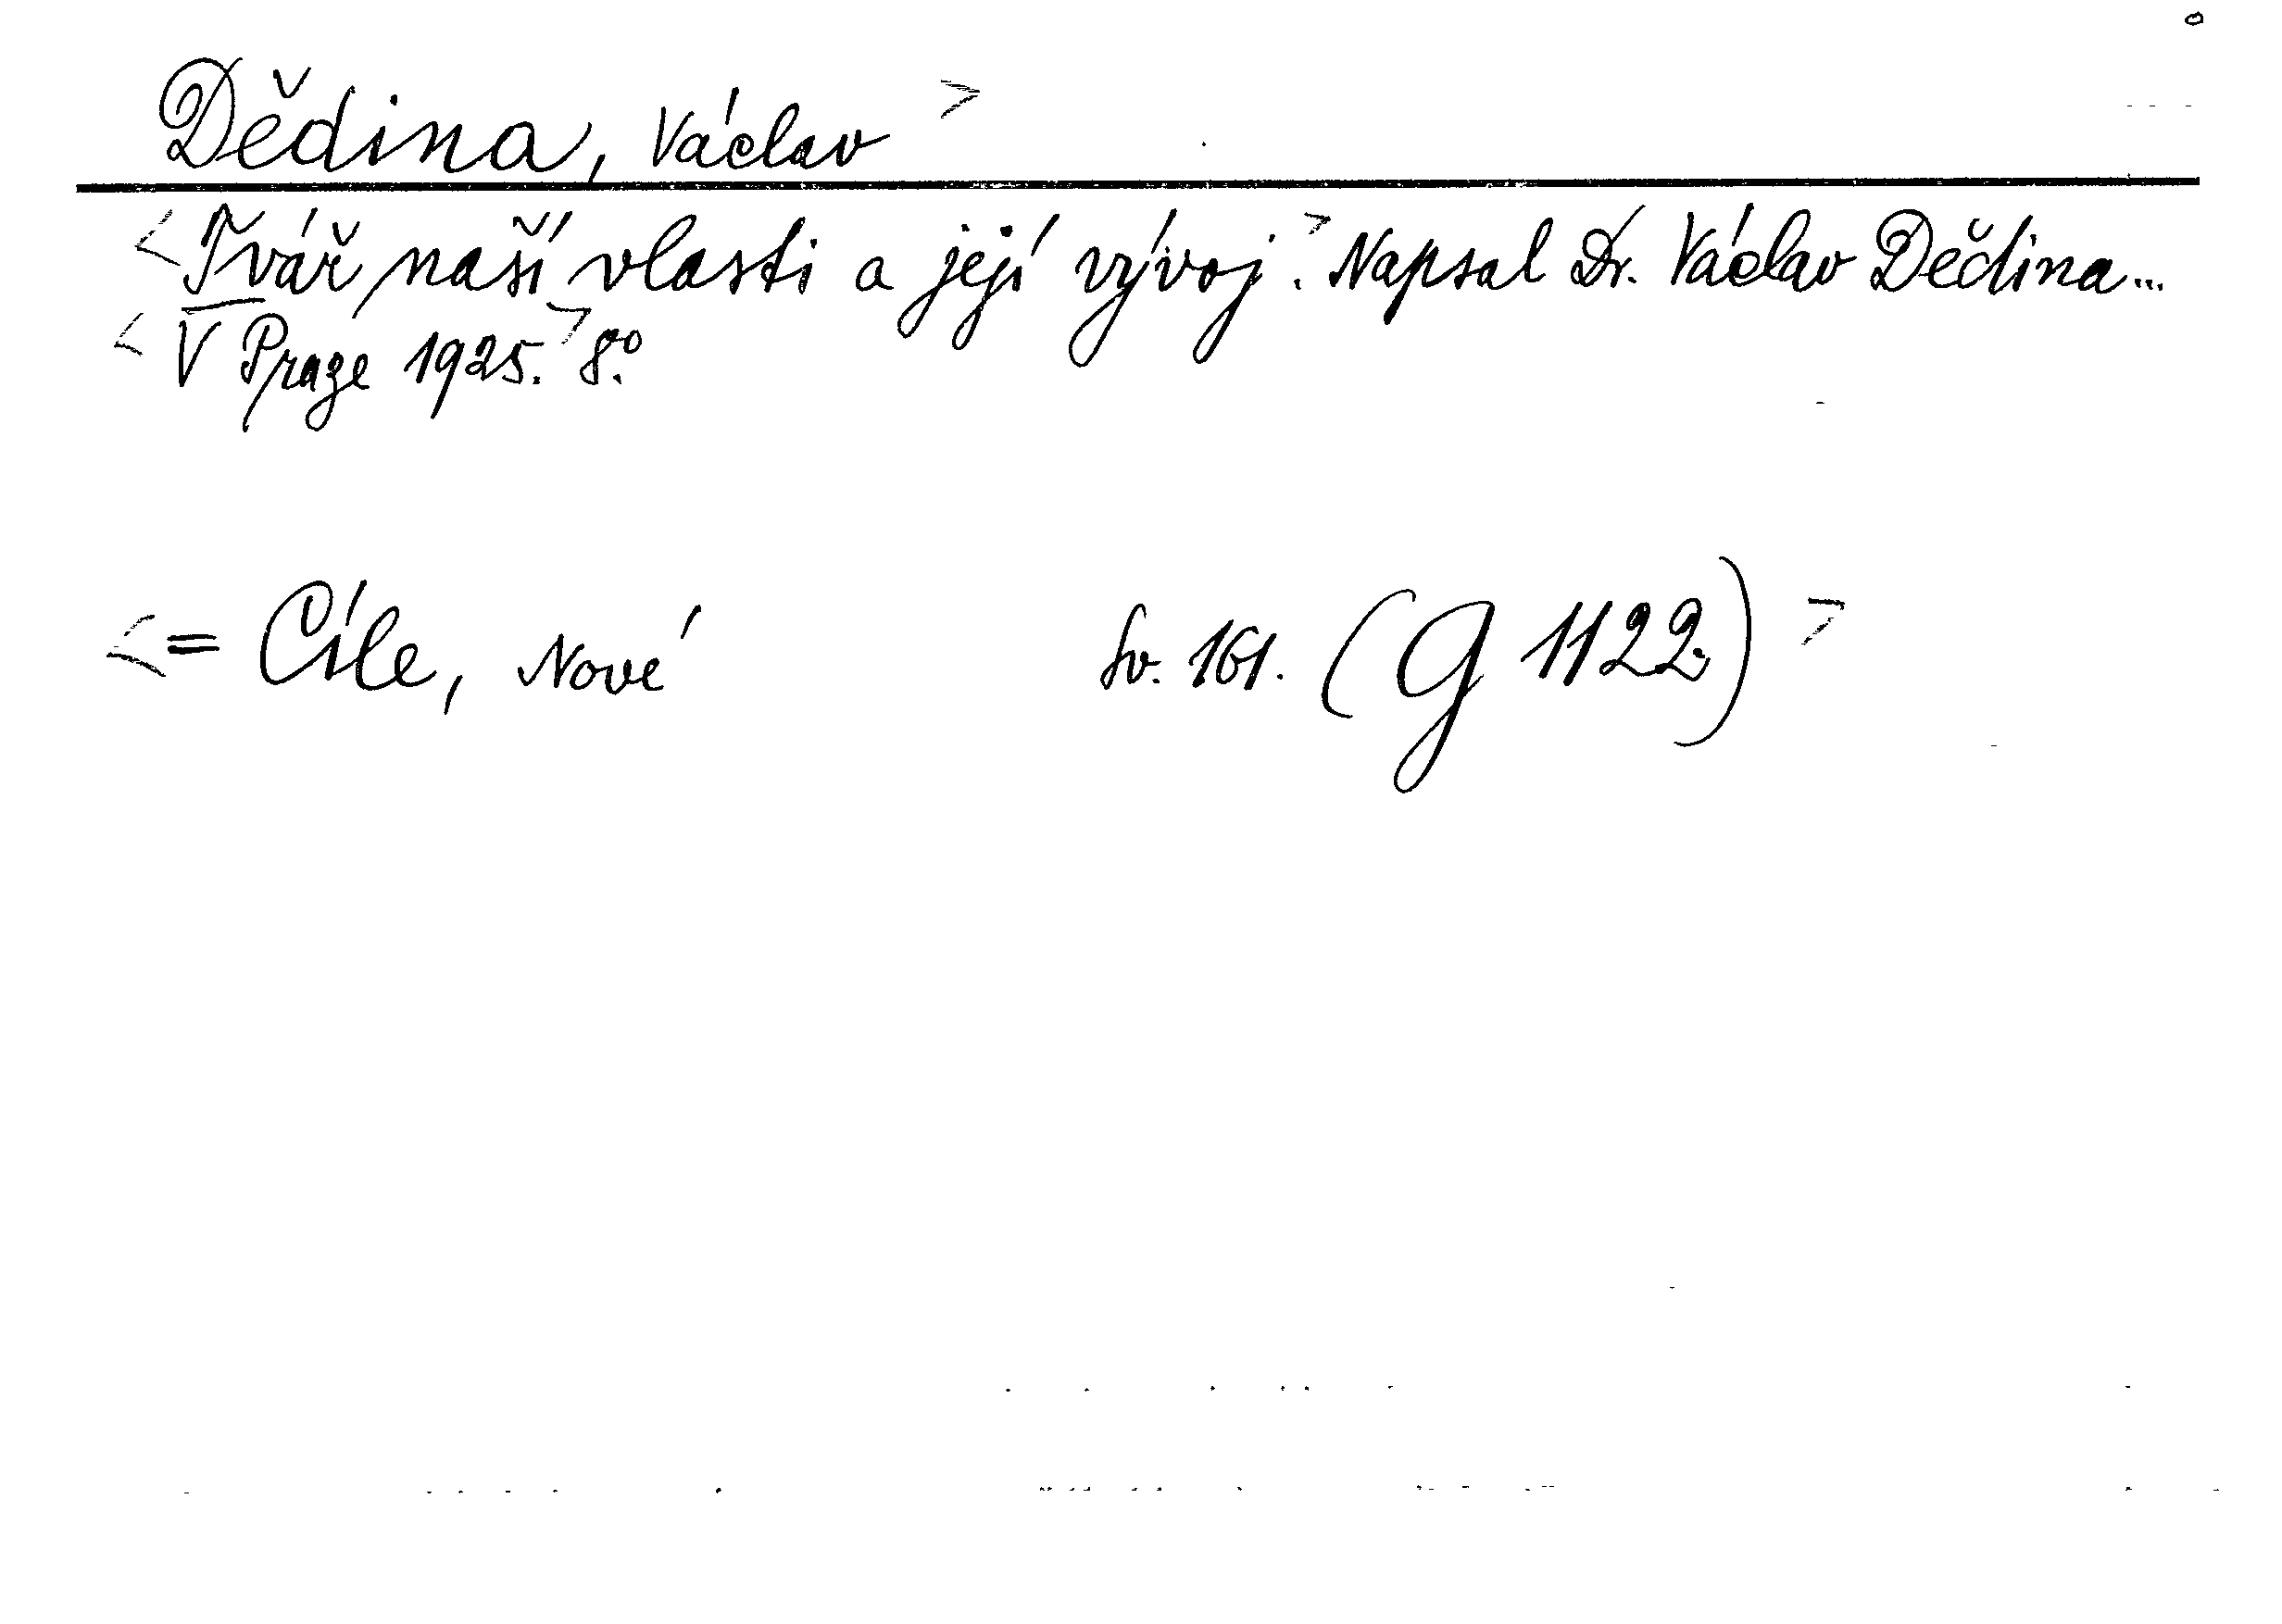 Dědina, Václav >
<Tvář naší vlasti a její vývoj.> Napsal Dr. Václav Dědina...
<V Praze 1925.> 8.º
<= Cíle, Nové Sv. 161. (G 1122.) >